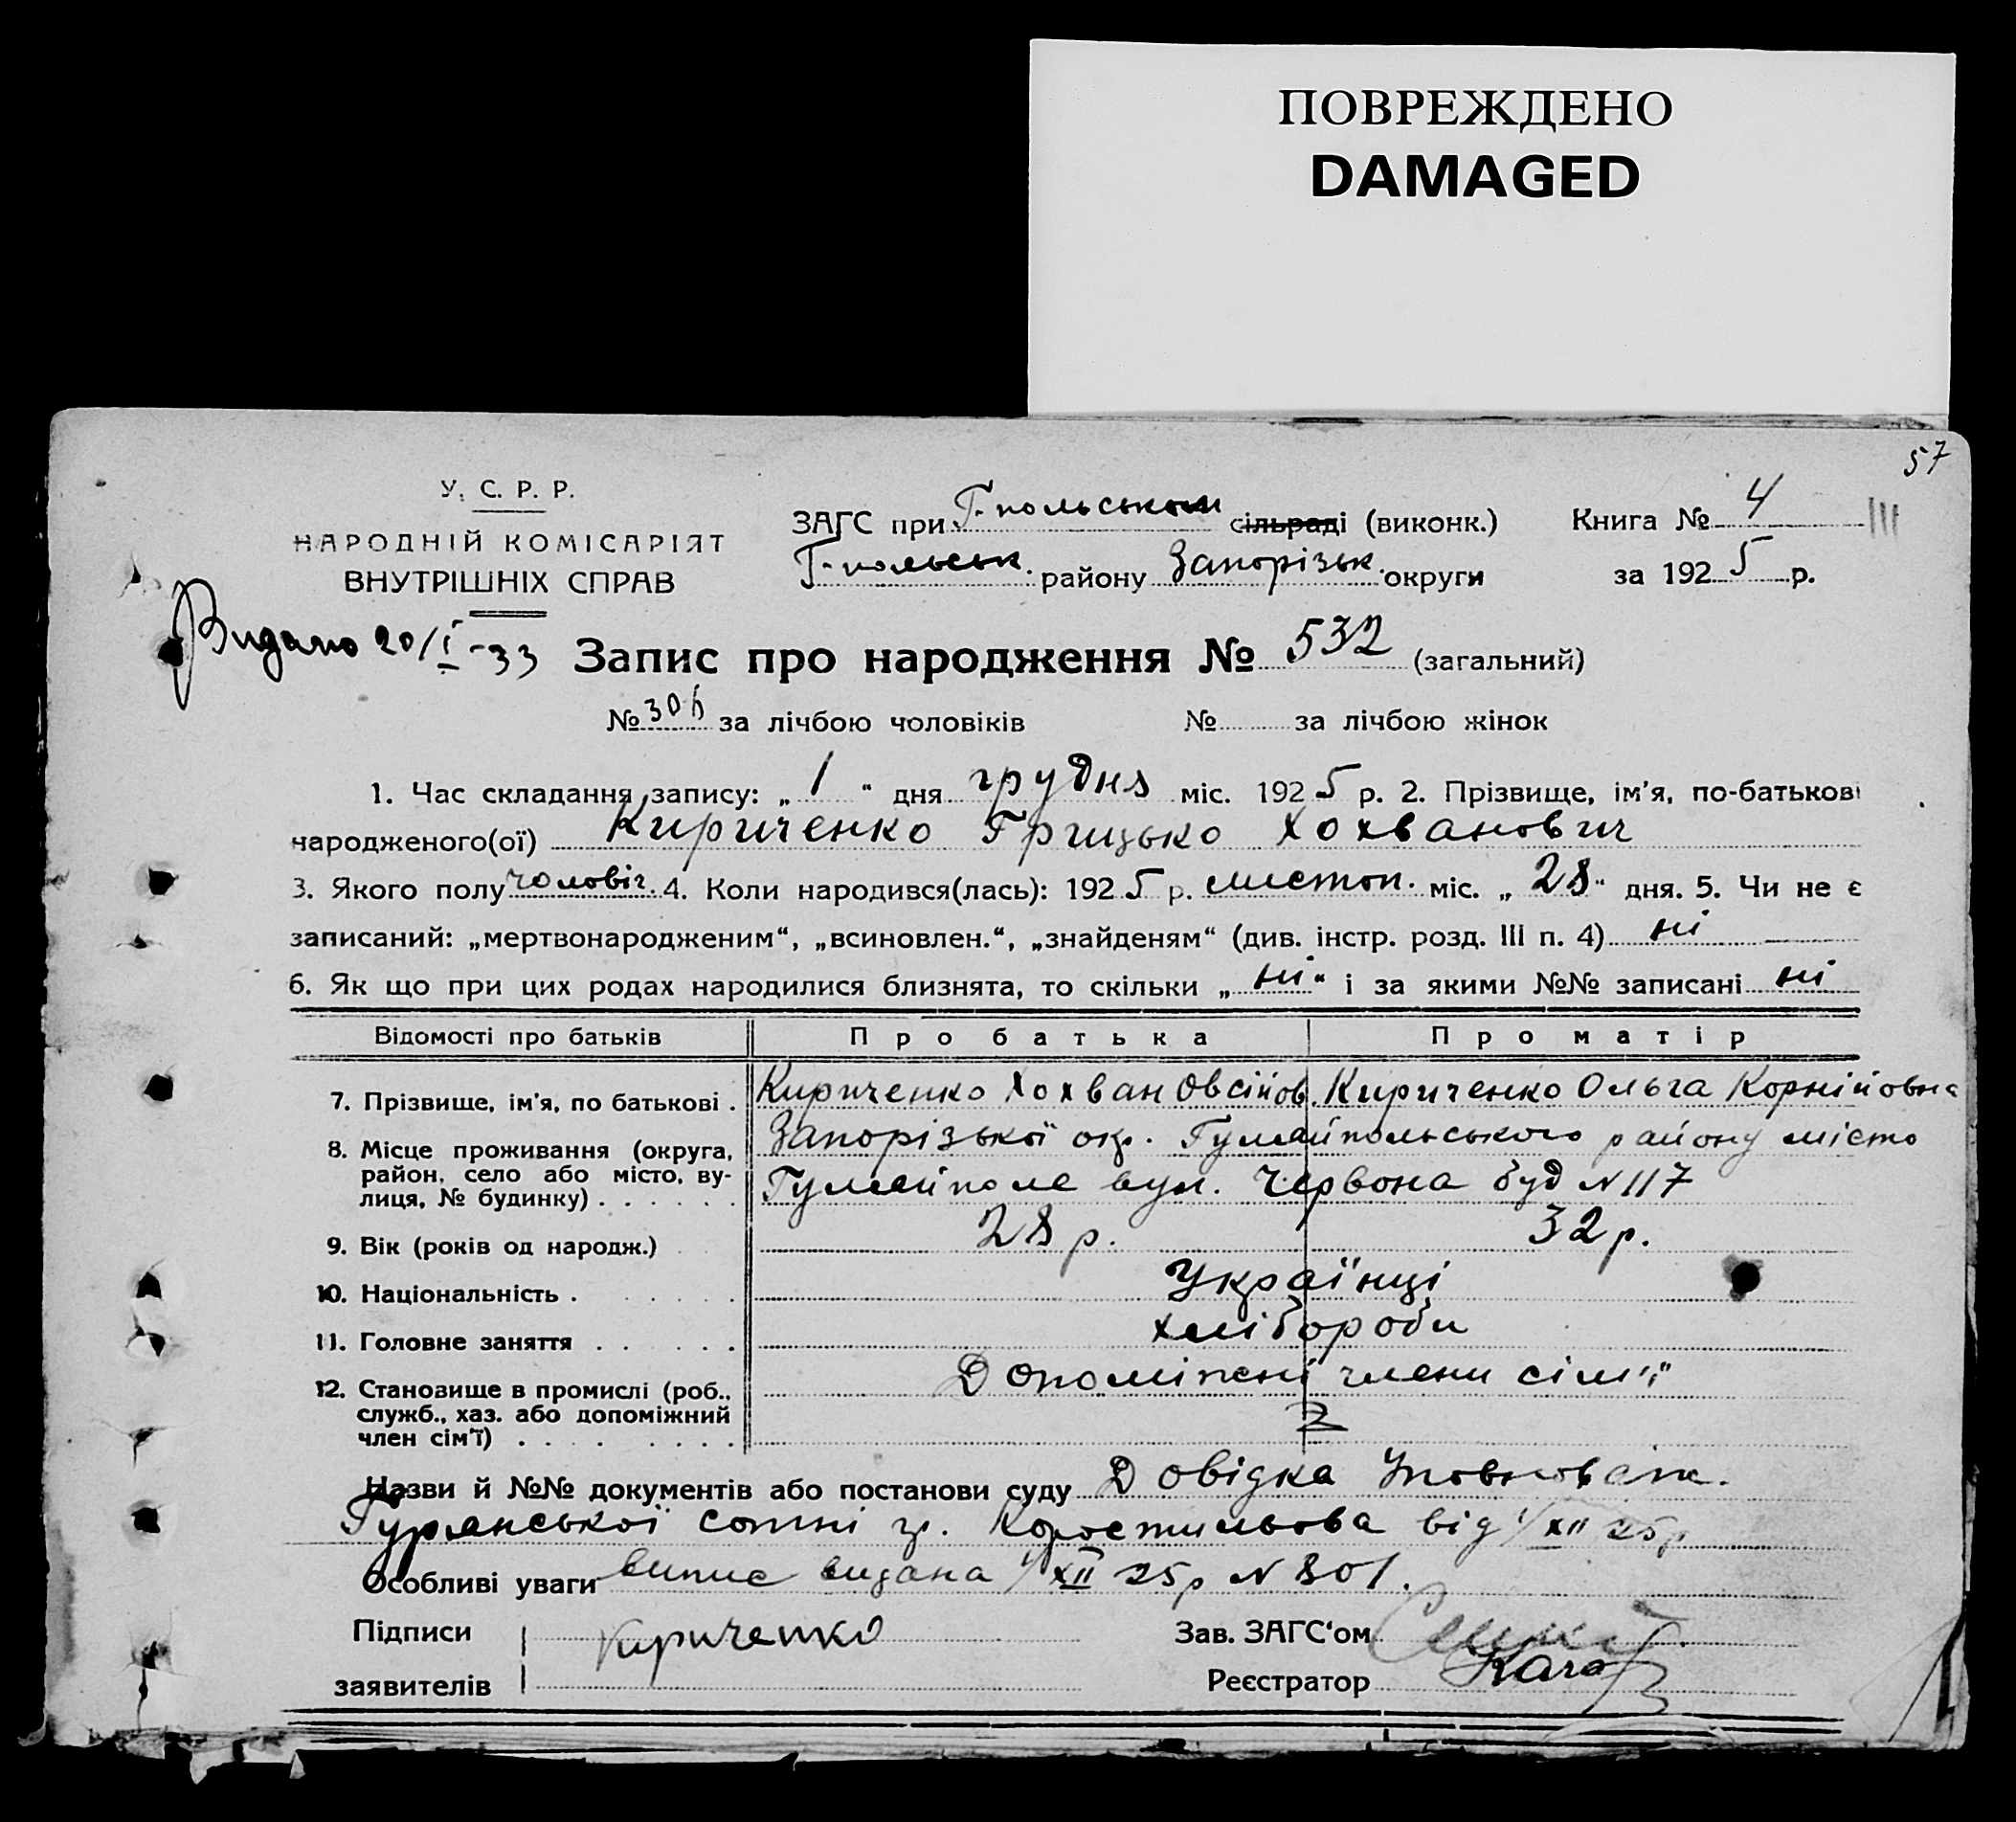 ПОВРЕЖДЕНО
DAMAGED
57
У. С. Р. Р.
НАРОДНІЙ КОМІСАРІЯТ
ВНУТРІШНІХ СПРАВ
ЗАГС при Г-польськом сільраді (виконк.)
Г-польськ. району Запорізьк. округи
Книга № 4
за 1925 р.
Видано 20/I-33
Запис про народження № 532 (загальний)
№ 306 за лічбою чоловіків № за лічбою жінок
1. Час складання запису: „ 1 “ дня грудня міс. 1925 р. 2. Прізвище, ім’я, по-батькові
народженого(ої) Кириченко Грицько Хохванович
3. Якого полу чоловіч. 4. Коли народився(лась): 1925 р. листоп. міс. „ 28 “ дня. 5. Чи не є
записаний: „мертвонародженим“, „всиновлен.“, „знайденям“ (див. інстр. розд. III п. 4) ні
6. Як що при цих родах народилися близнята, то скільки „ ні “ і за якими №№ записані ні
Відомості про батьків Про батька Про матір
7. Прізвище, ім’я, по батькові . Кириченко Хохван Овсійов. Кириченко Ольга Корнійовна
8. Місце проживання (округа, район, село або місто, вулиця, № будинку) . . . . . . Запорізької окр. Гуляйпольського району місто
Гуляйполе вул. Червона буд N 117
9. Вік (років од народж.) 28 р. 32 р.
10. Національність . Українці
11. Головне заняття . . . . . . хлібороби
12. Становище в промислі (роб., служб., хаз. або допоміжний член сім’ї) . . . . Допоміжні члени сім'ї
Назви й №№ документів або постанови суду Довідка Уповноваж.
Гурянської сотні гр. Коростильова від 1/XII 25р
Особливі уваги випис видана 1/XII 25р N 801.
Підписи
заявителів
Кириченко
Зав. ЗАГС‘ом
Реєстратор